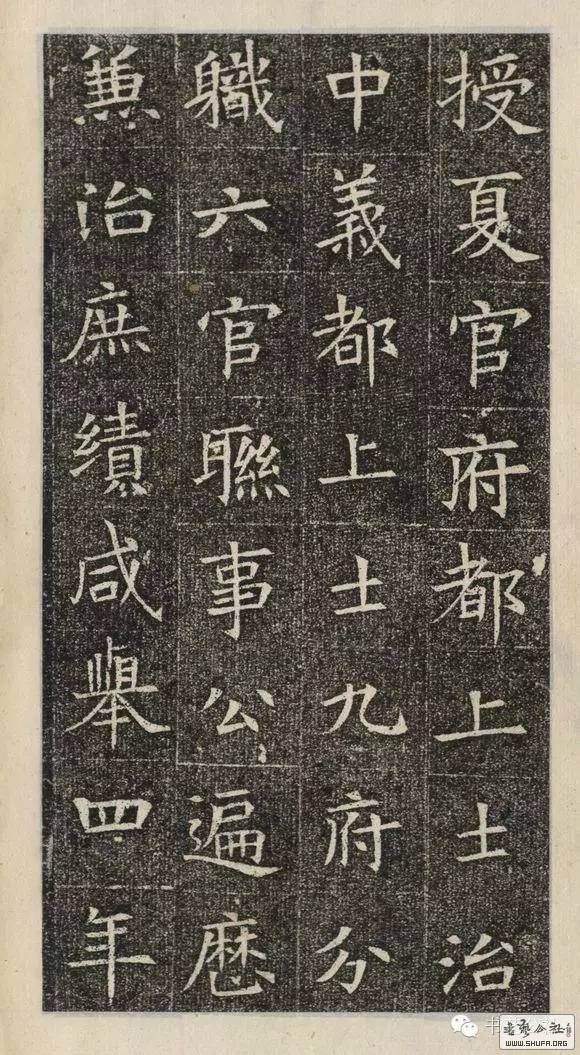 授夏官府都上士治
中義都上士九府分
軄六官聯事公遍歷
兼治庶績咸舉四年
书
書藝公社
WWW.SHUFA.ORG